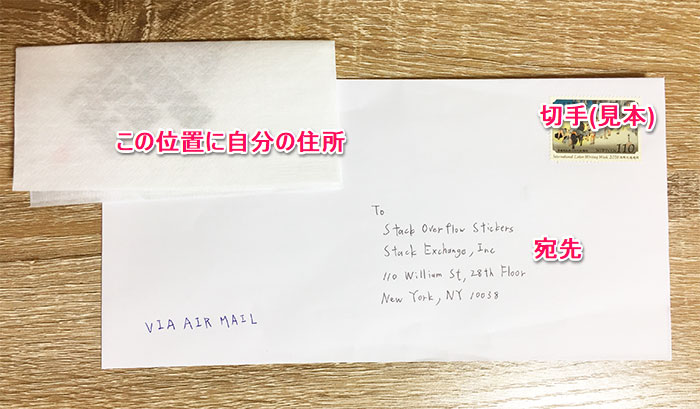 この位置に自分の住所
切手(見本)
110
International Letter Writing Week 2016
To
Stack Overflow Stickers
Stack Exchange, Inc
110 William St, 28th Floor
New York, NY 10038
宛先
VIA AIR MAIL